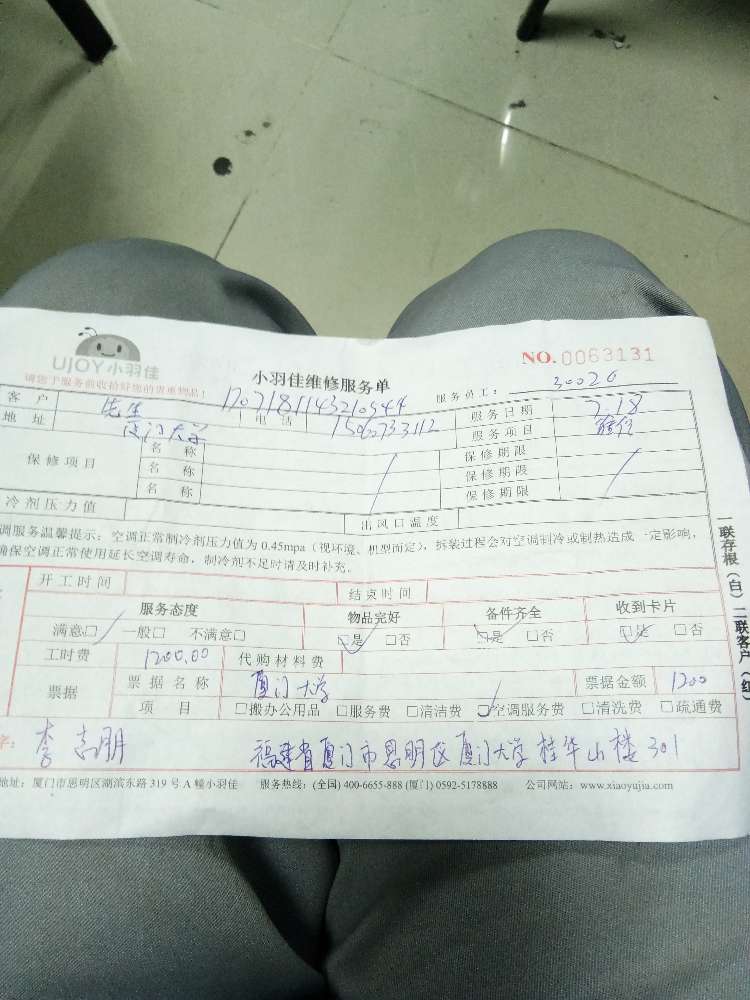 UJOY小羽佳
请您于服务前收拾好您的贵重物品!
小羽佳维修服务单
NO.0063131
服务员工: 30026
客户 先生 1707181143210544 服务日期 7.18
地址 厦门大学 电话 服务项目
保修项目 名称 保修期限
名称 保修期限
名称 保修期限
冷剂压力值 出风口温度
调服务温馨提示: 空调正常制冷剂压力值为 0.45mpa (视环境、机型而定), 拆装过程会对空调制冷或制热造成一定影响,
确保空调正常使用延长空调寿命, 制冷剂不足时请及时补充。
开工时间 结束时间
服务态度 物品完好 备件齐全 收到卡片
满意□ 一般□ 不满意□ □是 □否 □是 □否 □是 □否
工时费 1200.00 代购材料费
票据 票据名称 厦门大学 票据金额 1200
项目 □搬办公用品 □服务费 □清洁费 □空调服务费 □清洗费 □疏通费
字: 李志明 福建省厦门市思明区厦门大学桂华山楼301
地址: 厦门市思明区湖滨东路 319 号 A 幢小羽佳 服务热线: (全国) 400-6655-888 (厦门) 0592-5178888 公司网站: www.xiaoyujia.com
一联存根(白) 二联客户(红)